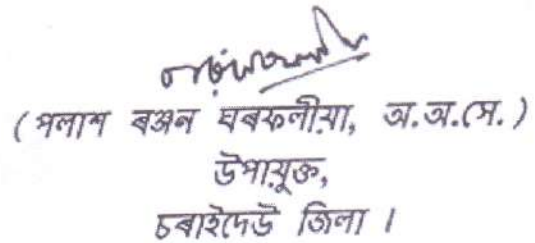 ( পলাশ ৰঞ্জন ঘৰফলীয়া, অ.অ.সে. )
উপায়ুক্ত,
চৰাইদেউ জিলা ।